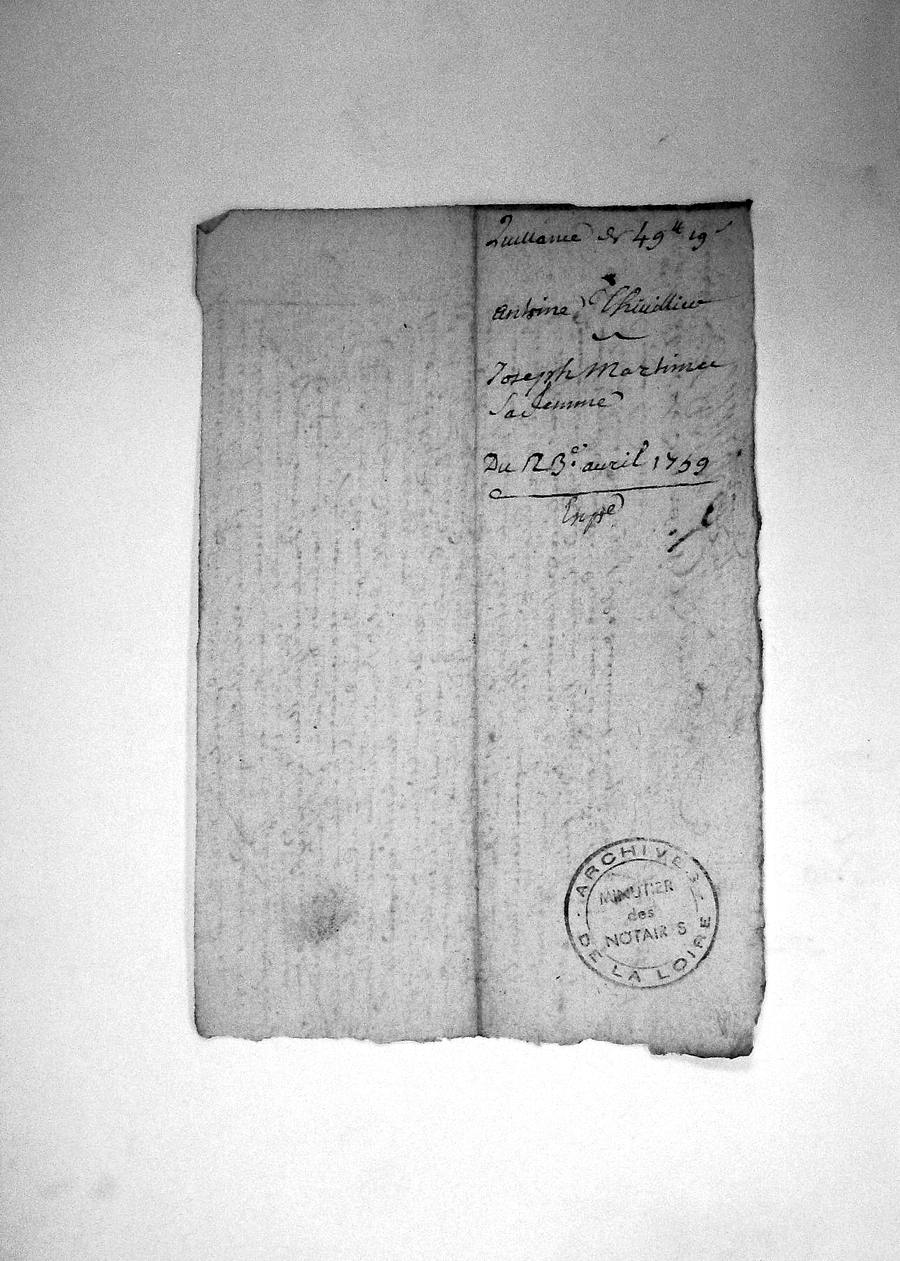 Quittance de 49ᵗᵗ 19ˢ
antoine Thivillier
Joseph Martinier
Sa femme
Du 23ᵉ avril 1769
Exppe
ARCHIVES DE LA LOIRE
MINUTIER
des
NOTAIR S